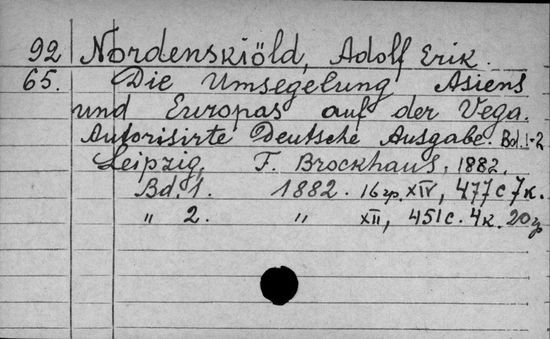 92 Nordenskiöld, Adolf Erik.
65. Die Umsegelung Asiens
und Europas auf der Vega.
Autorisirte Deutsche Ausgabe. Bd. 1-2
Leipzig, F. Brockhaus, 1882.
Bd. 1. 1882. 16 гр. XIV, 477 с 7 к.
„ 2. „ XII, 451 с. 4 к. 20